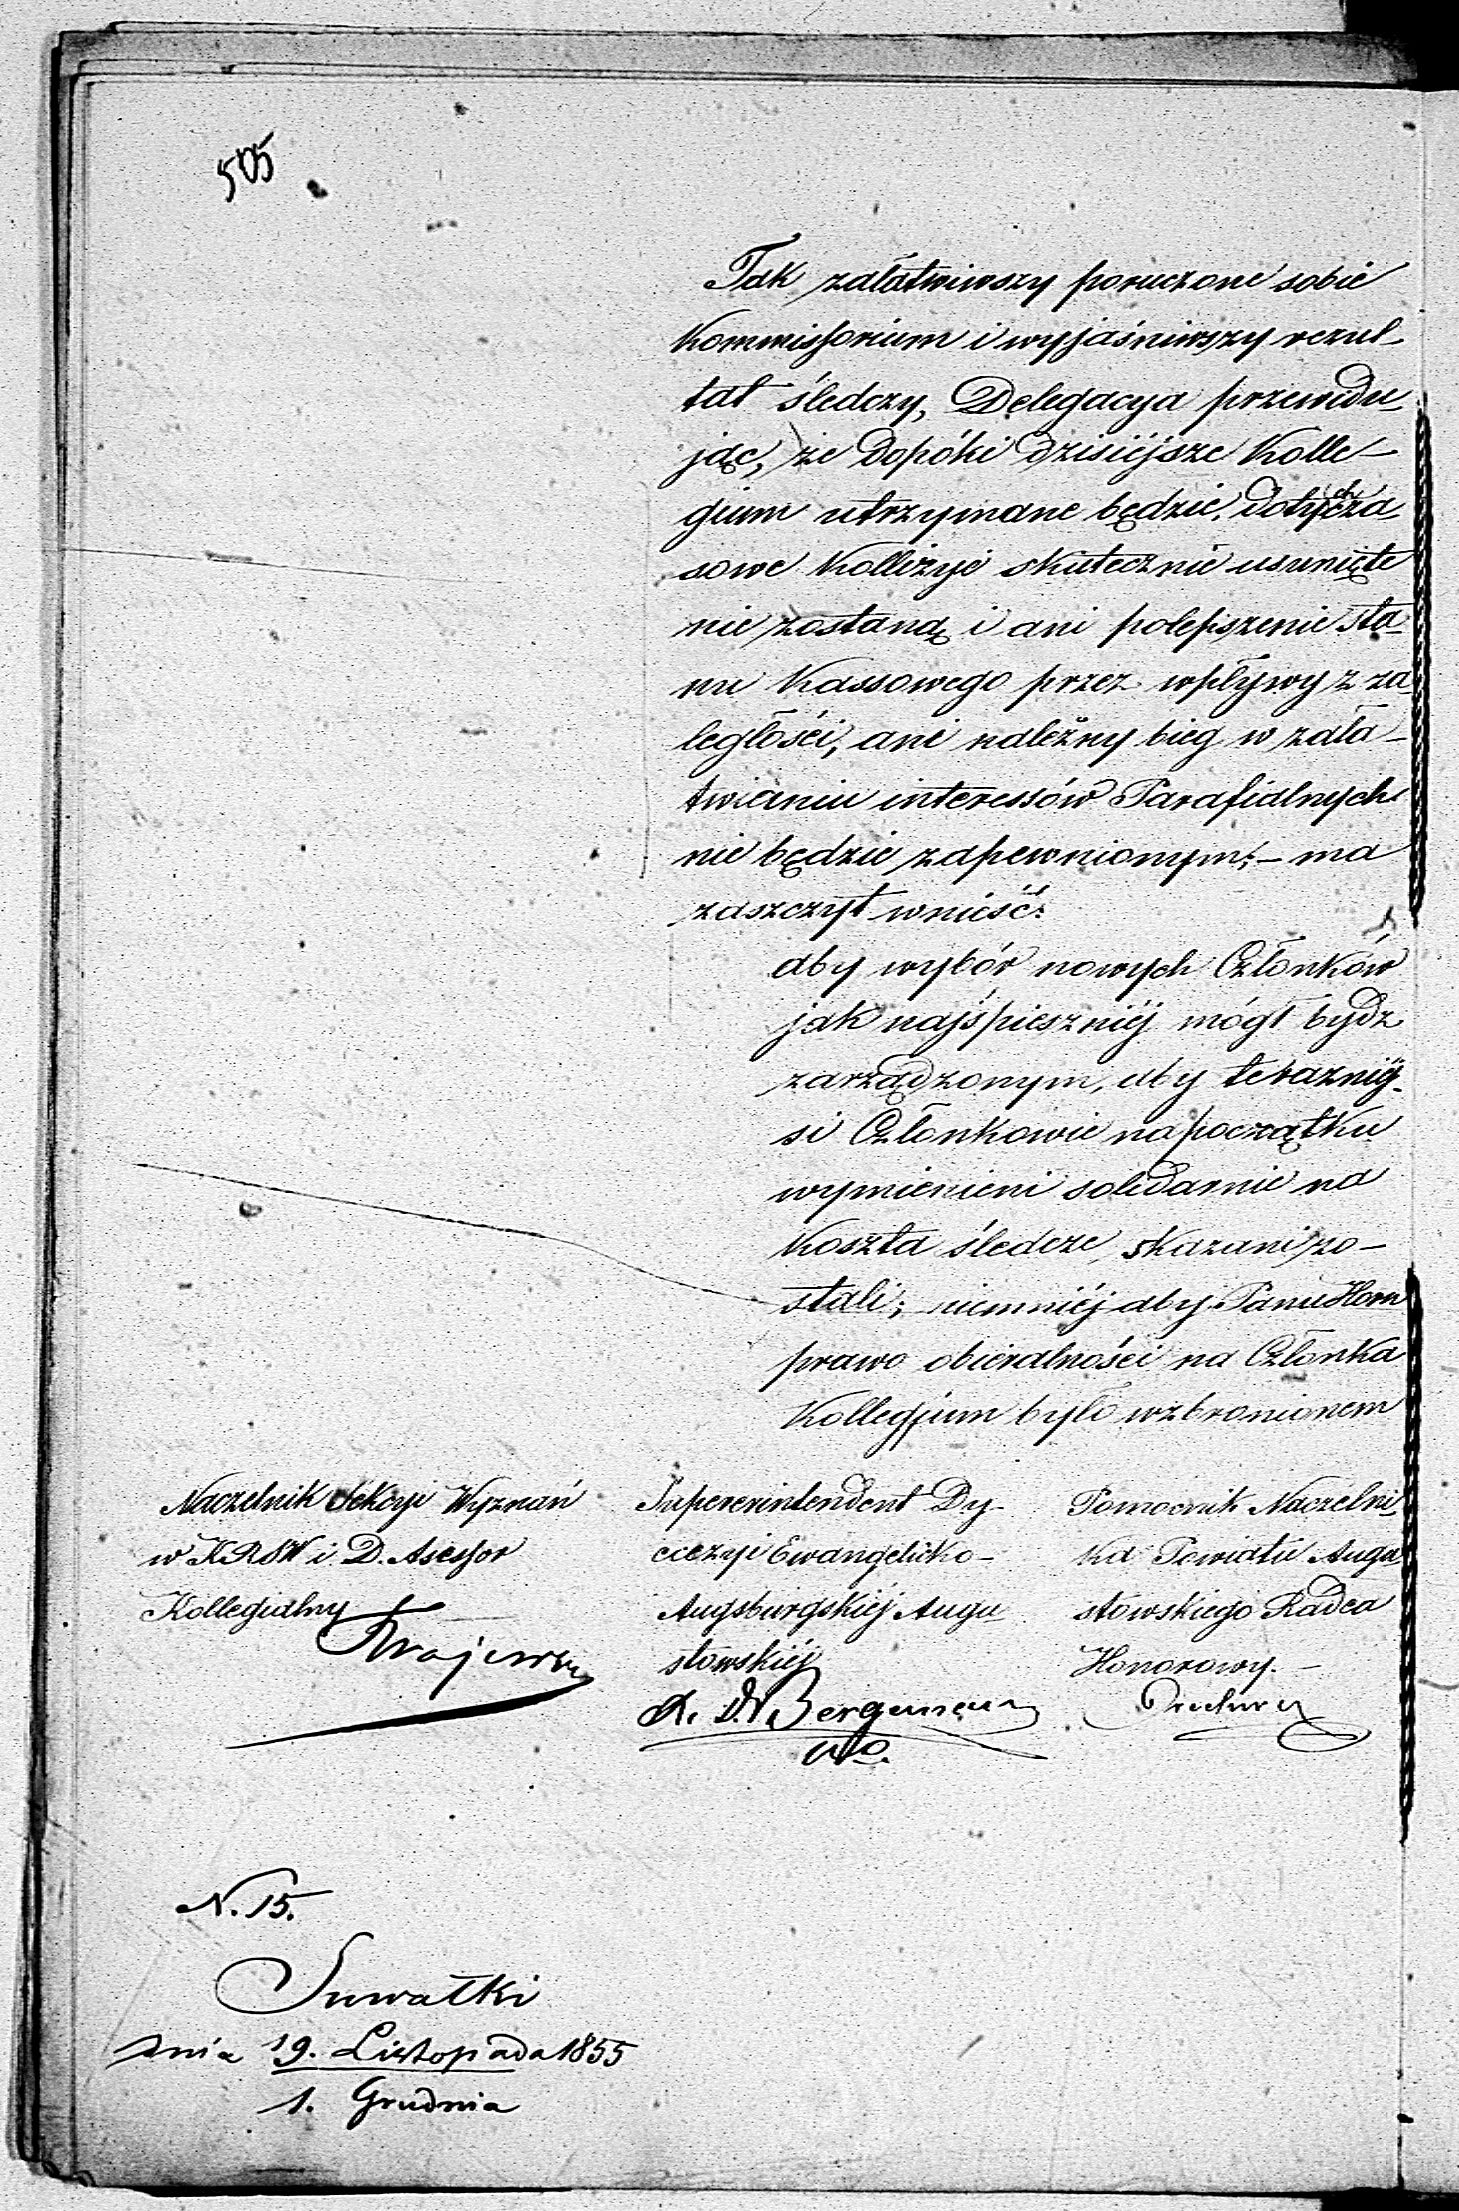 505
Tak załatwiwszy poruczone sobie
Kommissorium i wyjaśniwszy rezul-
tat śledczy, Delegacya przewidu-
jąc, że dopóki dzisiéjsze Kolle-
gium utrzymane będzie, dotychcza-
sowe Kollizye skutecznie usunięte
nie zostaną i ani polepszenie sta-
nu Kassowego przez wpływy z za-
ległości, ani należny bieg w zała-
twianiu interessów Parafialnych
nie będzie zapewnionym; – ma
zaszczyt wnieść:
aby wybór nowych Członków
jak najśpieszniéj mógł bydz
zarządzonym, aby teraznięj-
si Członkowie na początku
wymienieni solidarnie na
Koszta śledcze, skazani zo-
stali; niemniéj aby Panu Horn
prawo obieralności na Członka
Kollegjum było wzbronionem
Naczelnik Sekcyi Wyznań
w KRSW i D. Asessor
Kollegialny
Krajewski
Superintendent Dy-
ecezyi Ewangelicko-
Augsburgskiéj Augu-
stowskiéj
Bergemann
Pomocnik Naczelni-
ka Powiatu Augu-
stowskiego Radca
Honorowy. –
N. 15.
Suwałki
dnia 19. Listopada 1855
1. Grudnia